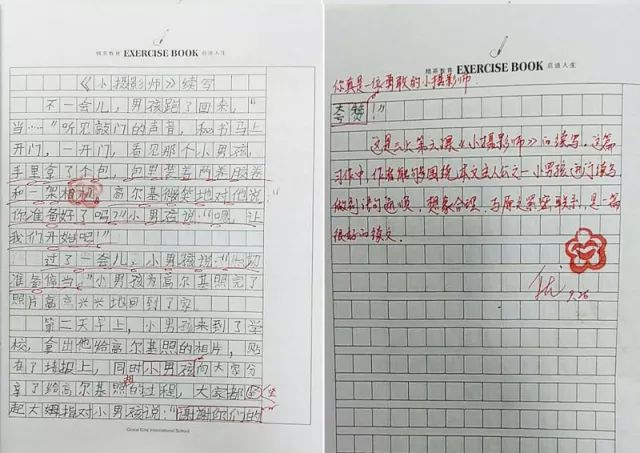 精英教育 EXERCISE BOOK 启迪人生
《小摄影师》续写
不一会儿，男孩跑了回来，“
当……”听见敲门的声音，秘书马上
开门，一开门，看见那个小男孩，
手里拿了个包，包里装着两卷胶卷
和一架相机。高尔基微笑地对他说：
“你准备好了吗？”小男孩说：“嗯，让
我们开始吧！”
过了一会儿，小男孩说：“一切
准备停当。”小男孩为高尔基照完了
照片高高兴兴地回到了家
第二天早上，小男孩来到了学
校，拿出他给高尔基照的相片，贴
在了墙报上，同时小男孩向大家分
享了给高尔基照相的过程，大家都竖
起大姆指对小男孩说：“谢谢你们的
Grand Elite International School
精英教育 EXERCISE BOOK 启迪人生
你真是一位勇敢的小摄影师
夸赞！”
这是三上第六课《小摄影师》的续写，这篇
习作中，作者能够围绕本文主人公之一小男孩进行续写
做到语句通顺，想象合理，与原文紧密联系，是一篇
很好的续文.
9.26